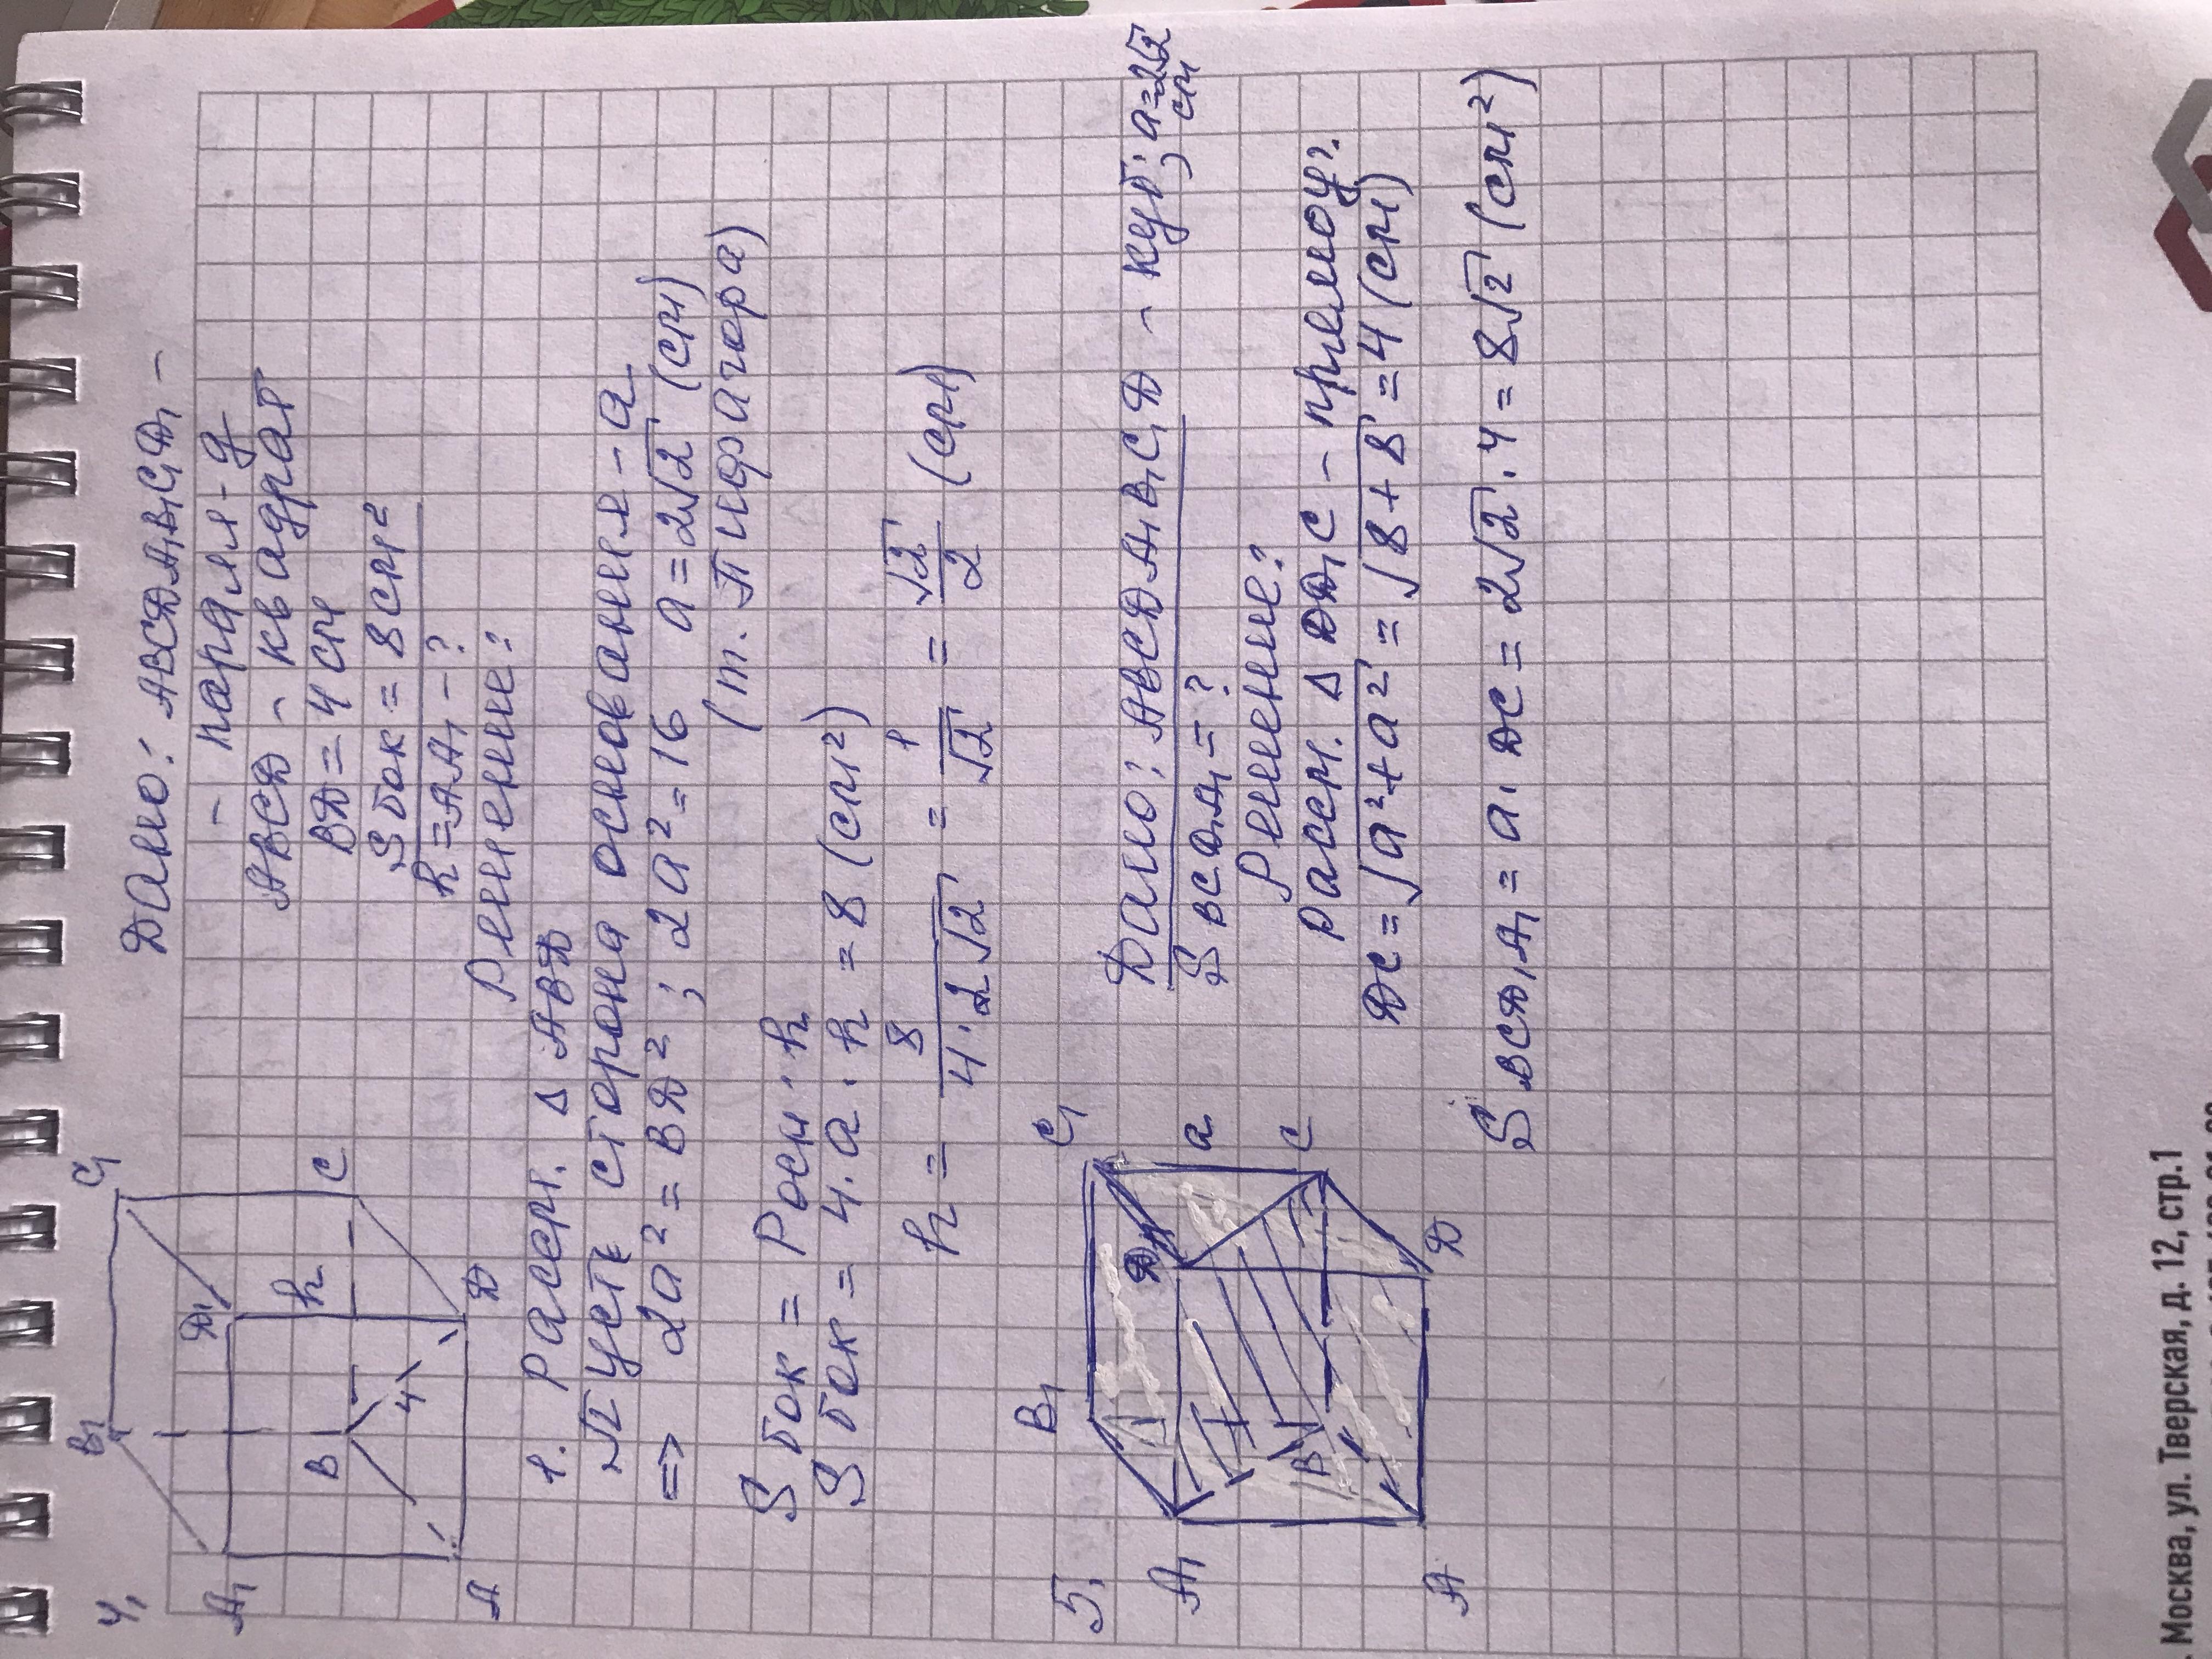 4.
B₁ C₁
A₁ Д₁
h
B C
4
A Д
Дано: ABCДA₁B₁C₁Д₁ –
– паралл-д
ABCД – квадрат
BД = 4 см
S бок = 8 см²
h = AA₁ – ?
Решение:
1. Рассм. Δ ABД
Пусть сторона основания – a
=> 2a² = BД² ; 2a² = 16 a = 2√2 (см)
(т. Пифагора)
S бок = Pосн · h
S бок = 4 · a · h = 8 (см²)
h = 8/(4·2√2) = 1/√2 = √2/2 (см)
5.
B₁ C₁
A₁ Д₁
a
B C
A Д
Дано: ABCДA₁B₁C₁Д – куб; a=2√2 см
S BCД₁A₁ – ?
Решение:
Рассм. Δ ДД₁C – прямоуг.
ДC = √(a²+a²) = √(8+8) = 4 (см)
S BCД₁A₁ = a · ДC = 2√2 · 4 = 8√2 (см²)
Москва, ул. Тверская, д. 12, стр.1